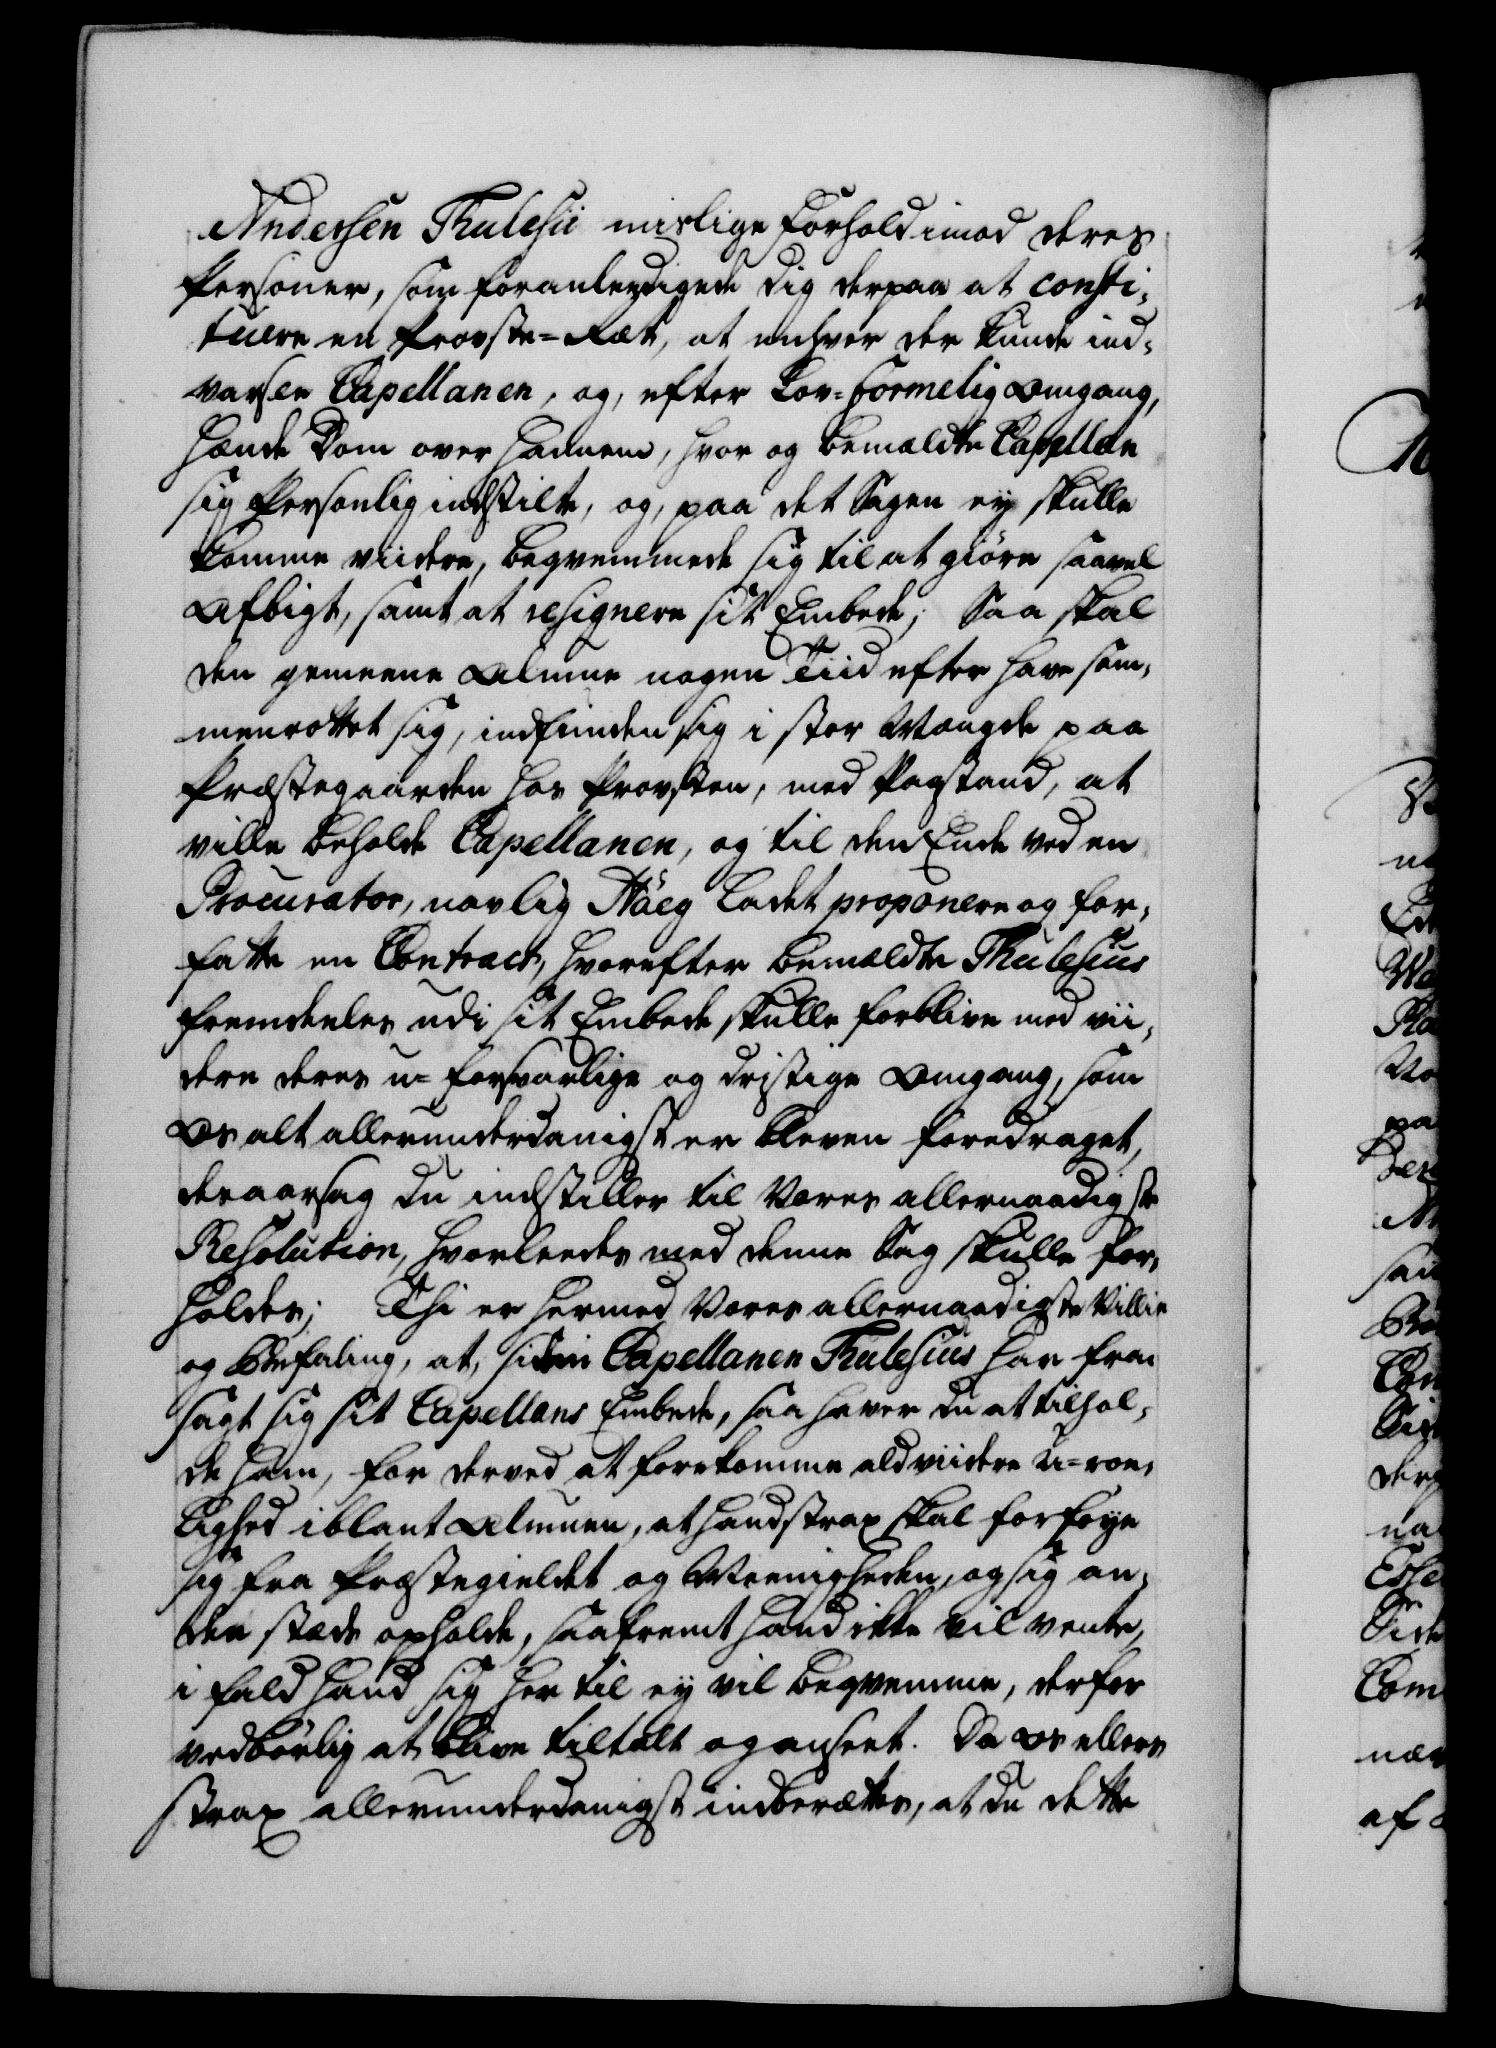 Andersen Thulesii mislige Forhold imod deres
Personer, som foranledigede dig derpaa at consti-
tuere en Provste-Ræt, at enhver der kunde ind-
varsle Capellanen, og, efter Lov-formelig Omgang,
hænde Dom over hannem, hvor og bemældte Capellan
sig Personlig indstilte, og, paa det Sagen ey skulle
komme viidere, beqvemmede sig til at giöre saavel
Afbigt, samt at resignere sit Embede; Saa skal
den gemeene Almue nogen Tiid efter have sam-
menrottet sig, indfunden sig i stor Mængde paa
Præstegaarden hos Provsten, med Paastand, at
ville beholde Capellanen, og til den Ende ved en
Procurator, navlig Höeg ladet proponere og for-
fatte en Contract, hvorefter bemældte Thulesius
fremdeeles udi sit Embede skulle forblive med vii-
dere deres u-forsvarlige og dristige Omgang, som
Os alt allerunderdanigst er bleven foredraget,
deraarsag du indstiller til Vores allernaadigste
Resolution, hvorleedes med denne Sag skulle for-
holdes; Thi er hermed Vores allernaadigste Villie
og Befaling, at, siden Capellanen Thulesius har fra-
sagt sig sit Capellans Embede, saa haver du at tilhol-
de ham, for derved at forekomme ald viidere u-roe-
lighed iblant Almuen, at hand strax skal forföye
sig fra Præstegieldet og Meenigheden, og sig an-
den stæds opholde, saafremt hand ikke vil vente,
i fald hand sig her til ey vil beqvemme, derfor
vedbörlig at blive tiltalt og anseet. Da Os ellers
strax allerunderdanigst indberættes, at du dette